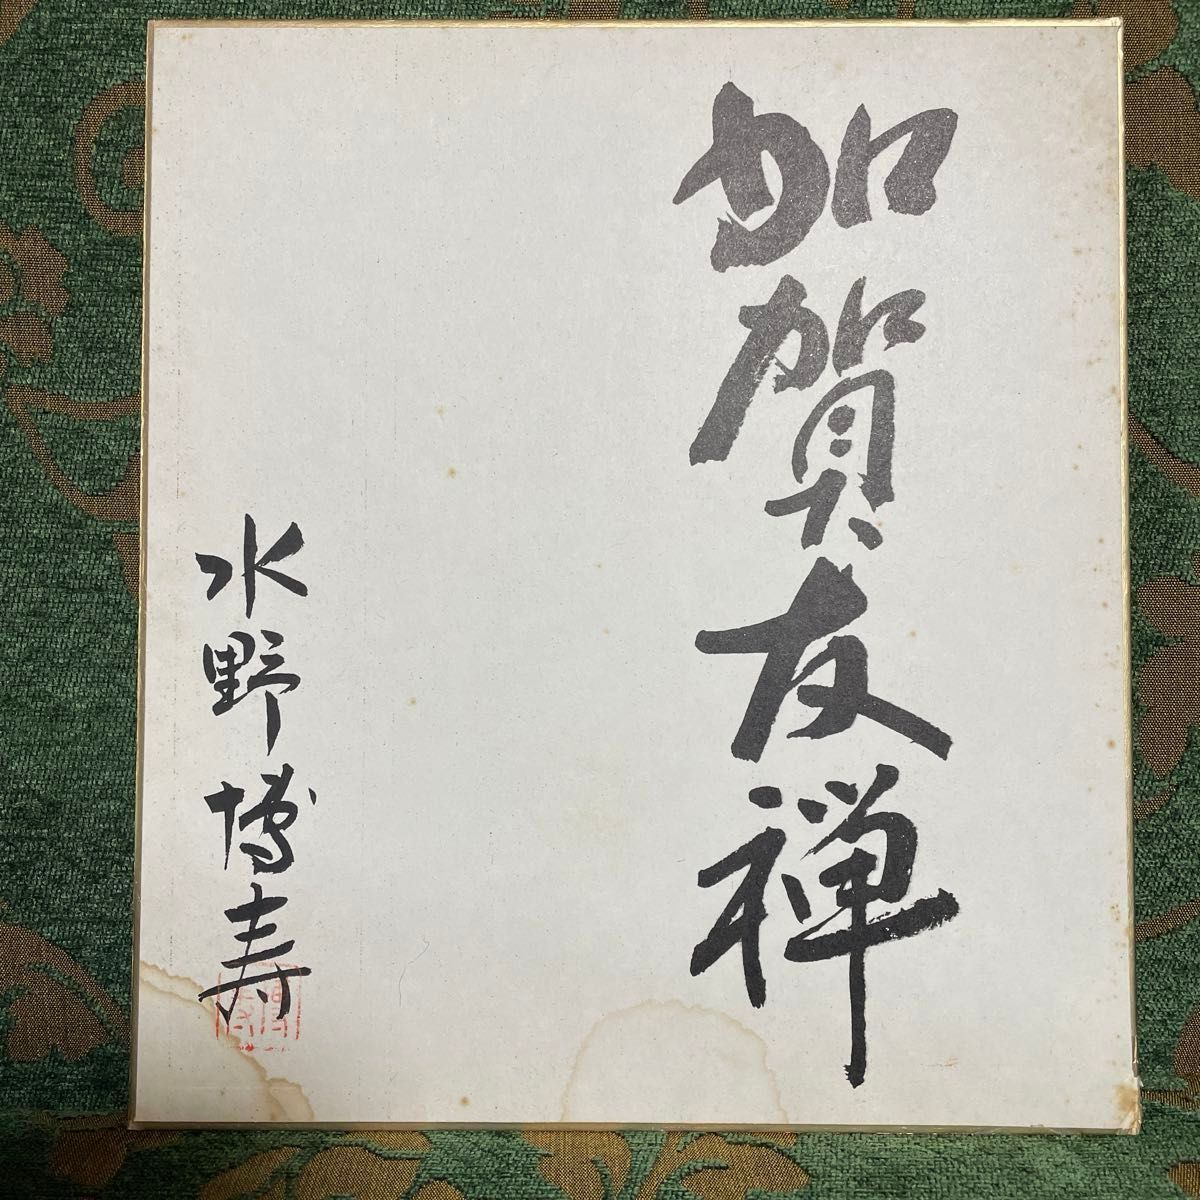 加賀友禅
水野博寿